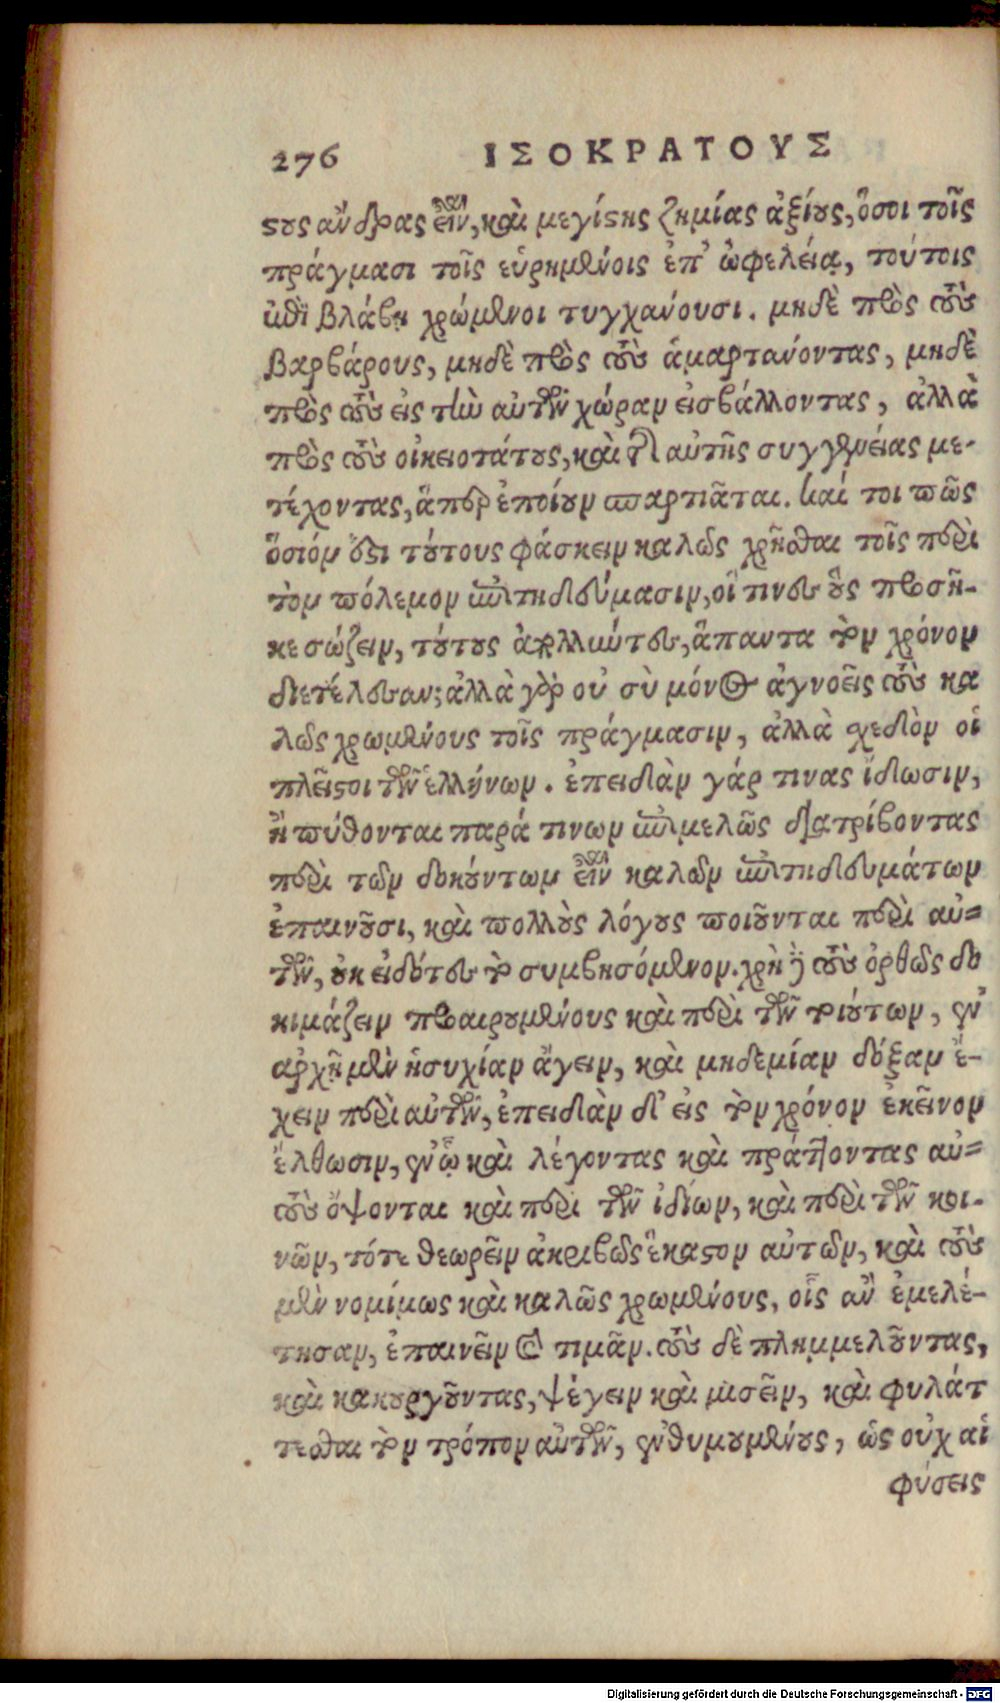 276 ΙΣΟΚΡΑΤΟΥΣ
στους ἄνδρας εἶναι, καὶ μεγίστης ζημίας ἀξίους, ὅσοι τοῖς
πράγμασι τοῖς εὑρημένοις ἐπ' ὠφελείᾳ, τούτοις
ἐπὶ βλάβῃ χρώμενοι τυγχανούσι. μηδὲ πρὸς τοὺς
βαρβάρους, μηδὲ πρὸς τοὺς ἁμαρτανόντας, μηδὲ
πρὸς τοὺς εἰς τὴν αὐτῶν χώραν εἰσβάλλοντας, ἀλλὰ
πρὸς τοὺς οἰκειοτάτους, καὶ τῆς αὐτῆς συγγενείας με-
τέχοντας, ἅπερ ἐποίουν σπαρτιᾶται. Καί τοι πῶς
ὅσιόν ἐστι τούτους φάσκειν καλῶς χρῆσθαι τοῖς περὶ
τὸν πόλεμον ἐπιτηδεύμασιν, οἵ τινες οὓς προσῆ-
κε σώζειν, τούτους ἀπολλύντες, ἅπαντα τὸν χρόνον
διετέλεσαν; ἀλλὰ γὰρ οὐ σὺ μόνος ἀγνοεῖς τοὺς κα
λῶς χρωμένους τοῖς πράγμασιν, ἀλλὰ σχεδὸν οἱ
πλεῖστοι τῶν ἑλλήνων. ἐπειδὰν γάρ τινας ἴδωσιν,
ἢ πύθονται παρά τινων ἐπιμελῶς διατρίβοντας
περὶ τῶν δοκούντων εἶναι καλῶν ἐπιτηδευμάτων
ἐπαινοῦσι, καὶ πολλοὺς λόγους ποιοῦνται περὶ αὐ=
τῶν, οὐκ εἰδότες τὸ συμβησόμενον. χρὴ δὲ τοὺς ὀρθῶς δο
κιμάζειν προαιρουμένους καὶ περὶ τῶν τοιούτων, ἐν
ἀρχῇ μὲν ἡσυχίαν ἄγειν, καὶ μηδεμίαν δόξαν ἔ-
χειν περὶ αὐτῶν, ἐπειδὰν δ' εἰς τὸν χρόνον ἐκεῖνον
ἔλθωσιν, ἐν ᾧ καὶ λέγοντας καὶ πράττοντας αὐ=
τοὺς ὄψονται καὶ περὶ τῶν ἰδίων, καὶ περὶ τῶν κοι-
νῶν, τότε θεωρεῖν ἀκριβῶς ἕκαστον αὐτῶν, καὶ τοὺς
μὲν νομίμως καὶ καλῶς χρωμένους, οἷς ἂν ἐμελέ-
τησαν, ἐπαινεῖν καὶ τιμᾶν. τοὺς δὲ πλημμελοῦντας,
καὶ κακουργοῦντας, ψέγειν καὶ μισεῖν, καὶ φυλάτ
τεσθαι τὸν τρόπον αὐτῶν, ἐνθυμουμένους, ὡς οὐχ αἱ
φύσεις
Digitalisierung gefördert durch die Deutsche Forschungsgemeinschaft - DFG